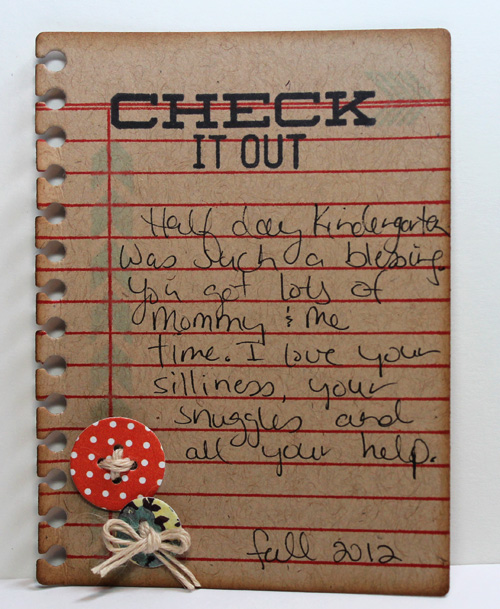 CHECK
IT OUT
Half day Kindergarten
was such a blessing.
You got lots of
mommy & me
time. I love your
silliness, your
snuggles and
all your help.
fall 2012